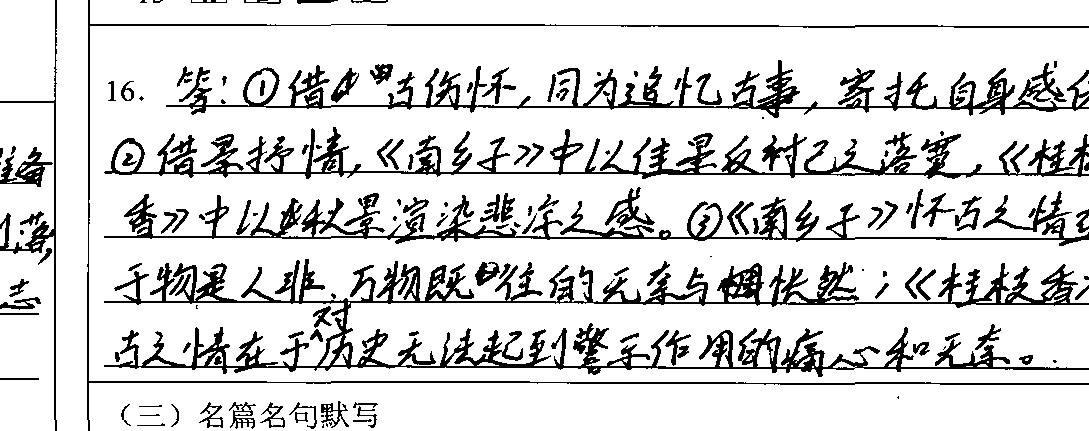 16. 答：①借古伤怀，同为追忆古事，寄托自身感
准备
②借景抒情，《南乡子》中以佳景反衬己之落寞，《桂枝
香》中以秋景渲染悲凉之感。③《南乡子》怀古之情
落，
于物是人非、万物既往的无奈与惆怅然；《桂枝香
志
古之情在于对历史无法起到警示作用的痛心和无奈。
（三）名篇名句默写